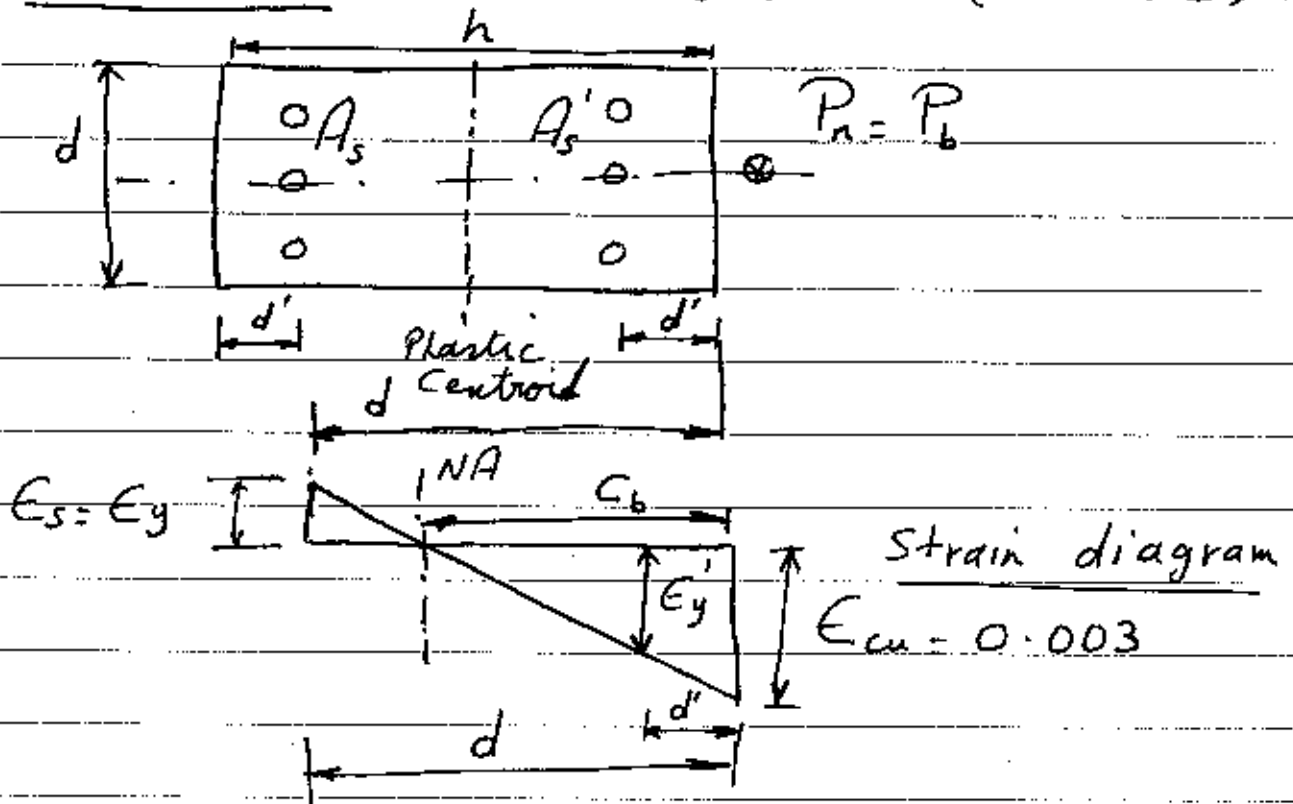 h
d
A_s
A_s'
P_n = P_b
d'
d'
Plastic
Centroid
d
NA
C_b
ϵ_s = ϵ_y
ϵ_y'
Strain diagram
ϵ_cu = 0.003
d'
d